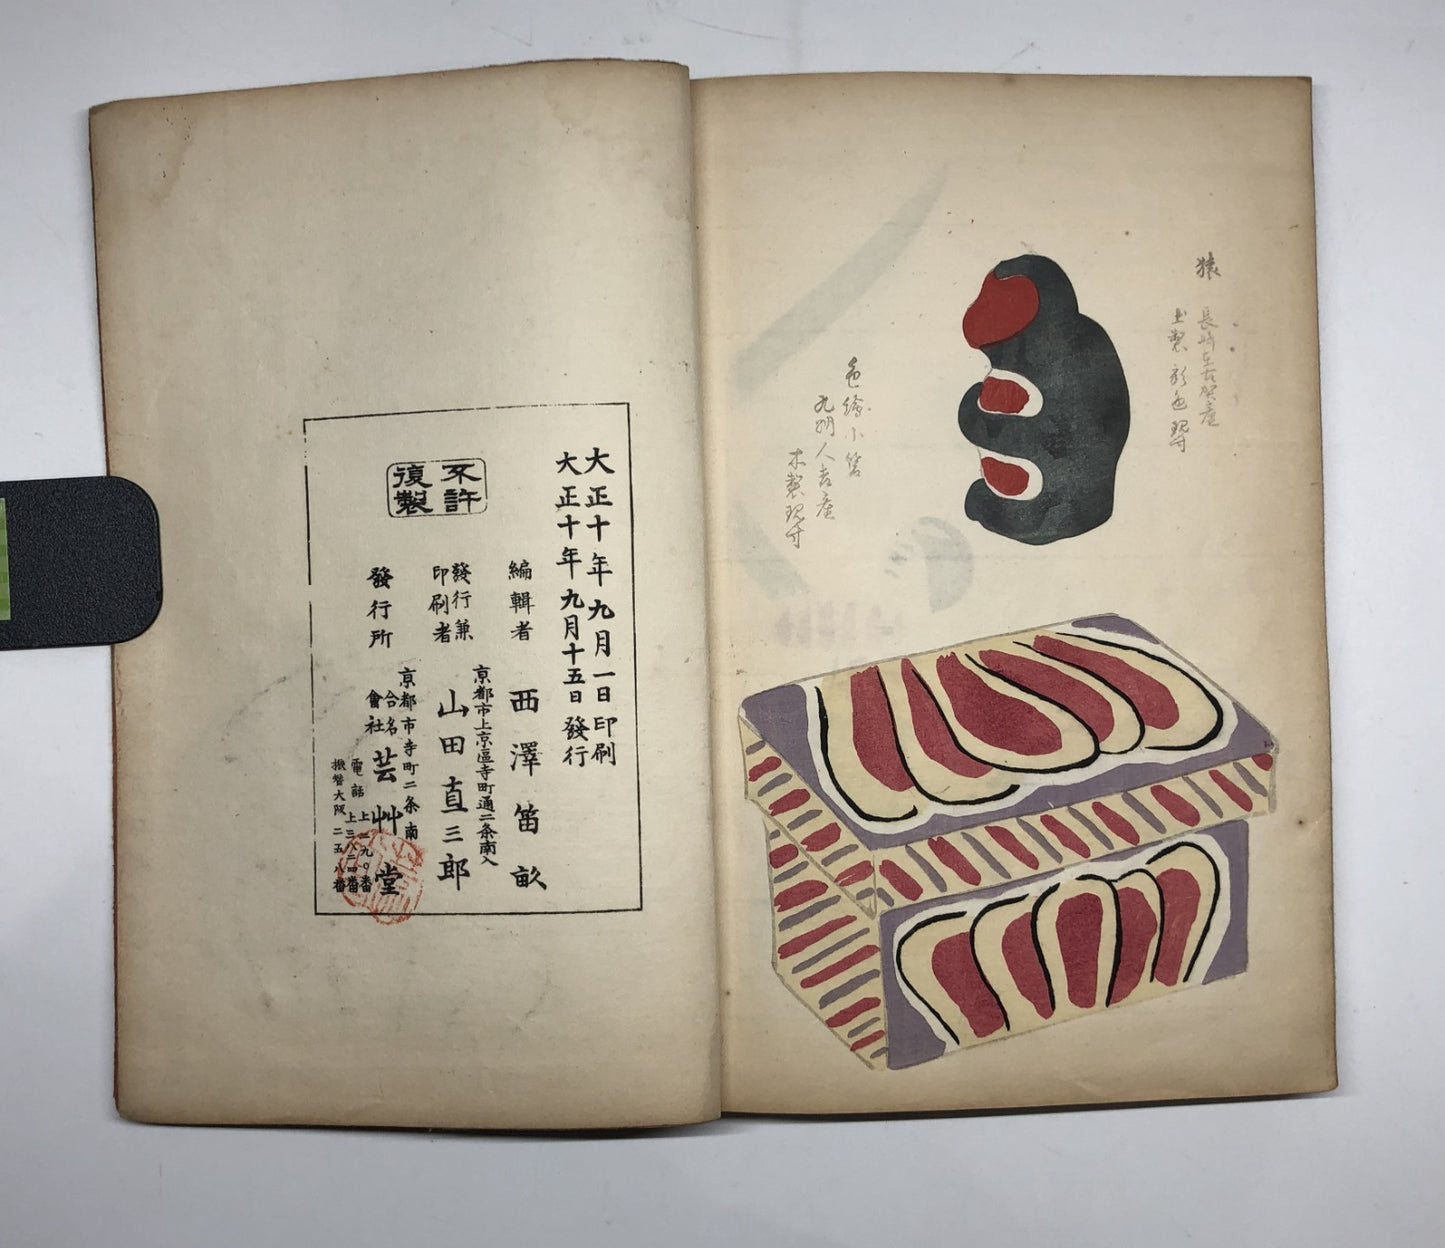 猿
長崎在古賀産
土製彩色現寸
色繪小筥
九州人吉産
木製現寸
大正十年九月一日印刷
大正十年九月十五日發行
不許
復製
編輯者 西澤笛畝
京都市上京區寺町通二条南入
發行兼
印刷者 山田直三郎
京都市寺町二条南
發行所 合名會社 芸艸堂
電話 上二九〇番
上三八二四番
振替大阪二五八番